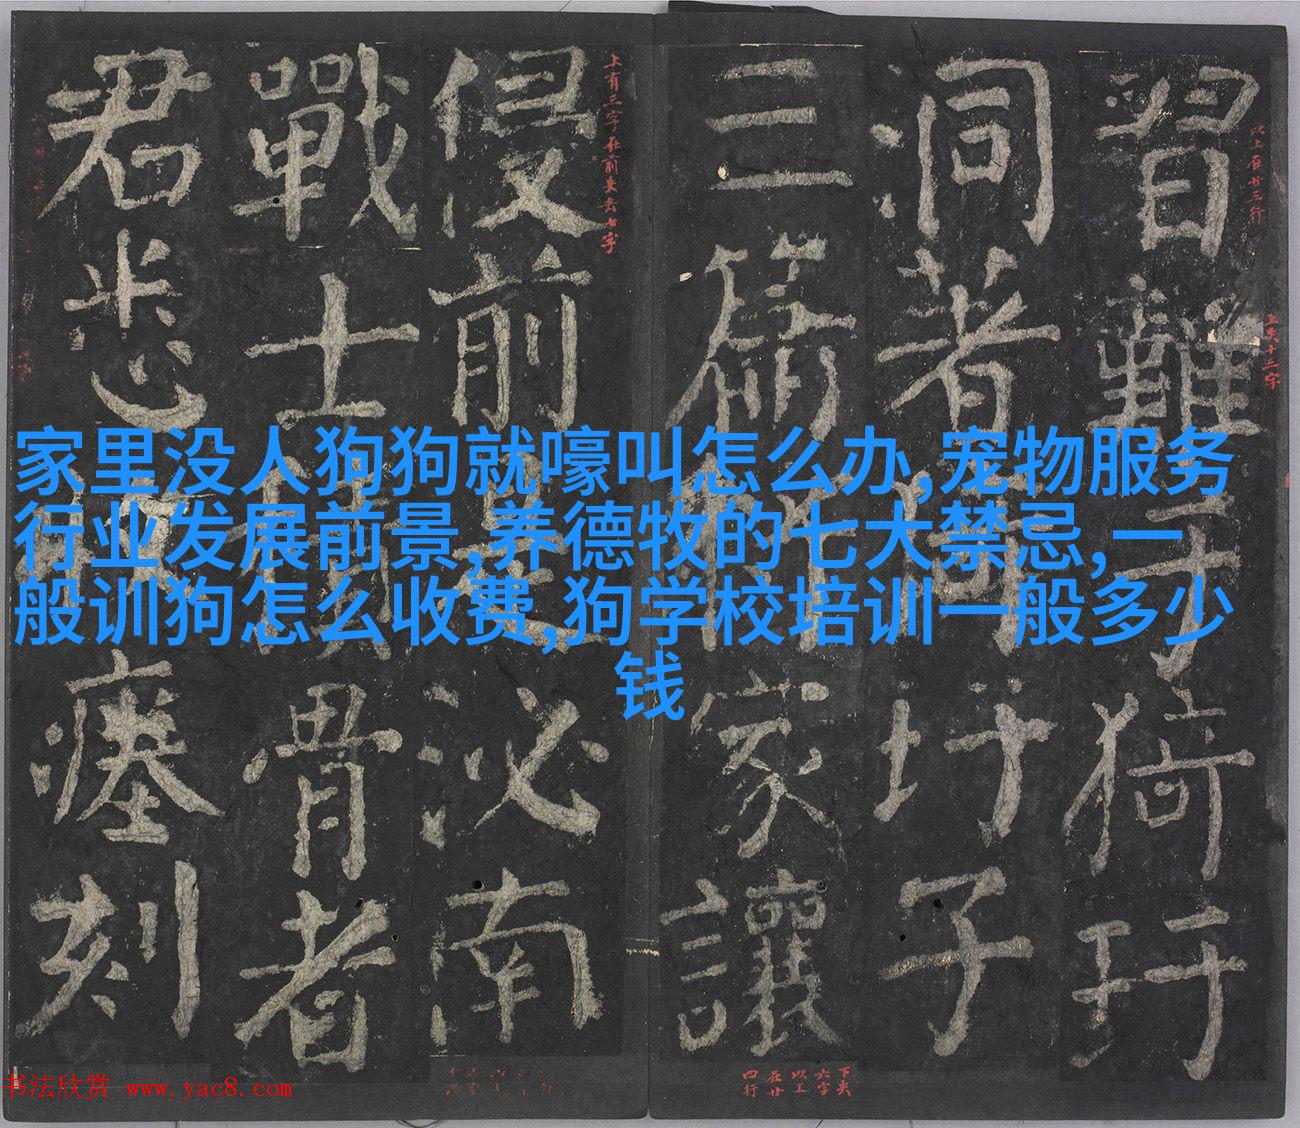 家里没人狗狗就嚎叫怎么办,宠物服务
行业发展前景,养德牧的七大禁忌,一
般训狗怎么收费,狗学校培训一般多少
钱
習難于猗玗
洞著圩子
三篇家讓
侵前是泌南
戰士積骨者
君悉瘞刻
以上在廿三行
上失十三字
下失
六字
以上
在廿
四行
书法欣赏 www.yac8.com